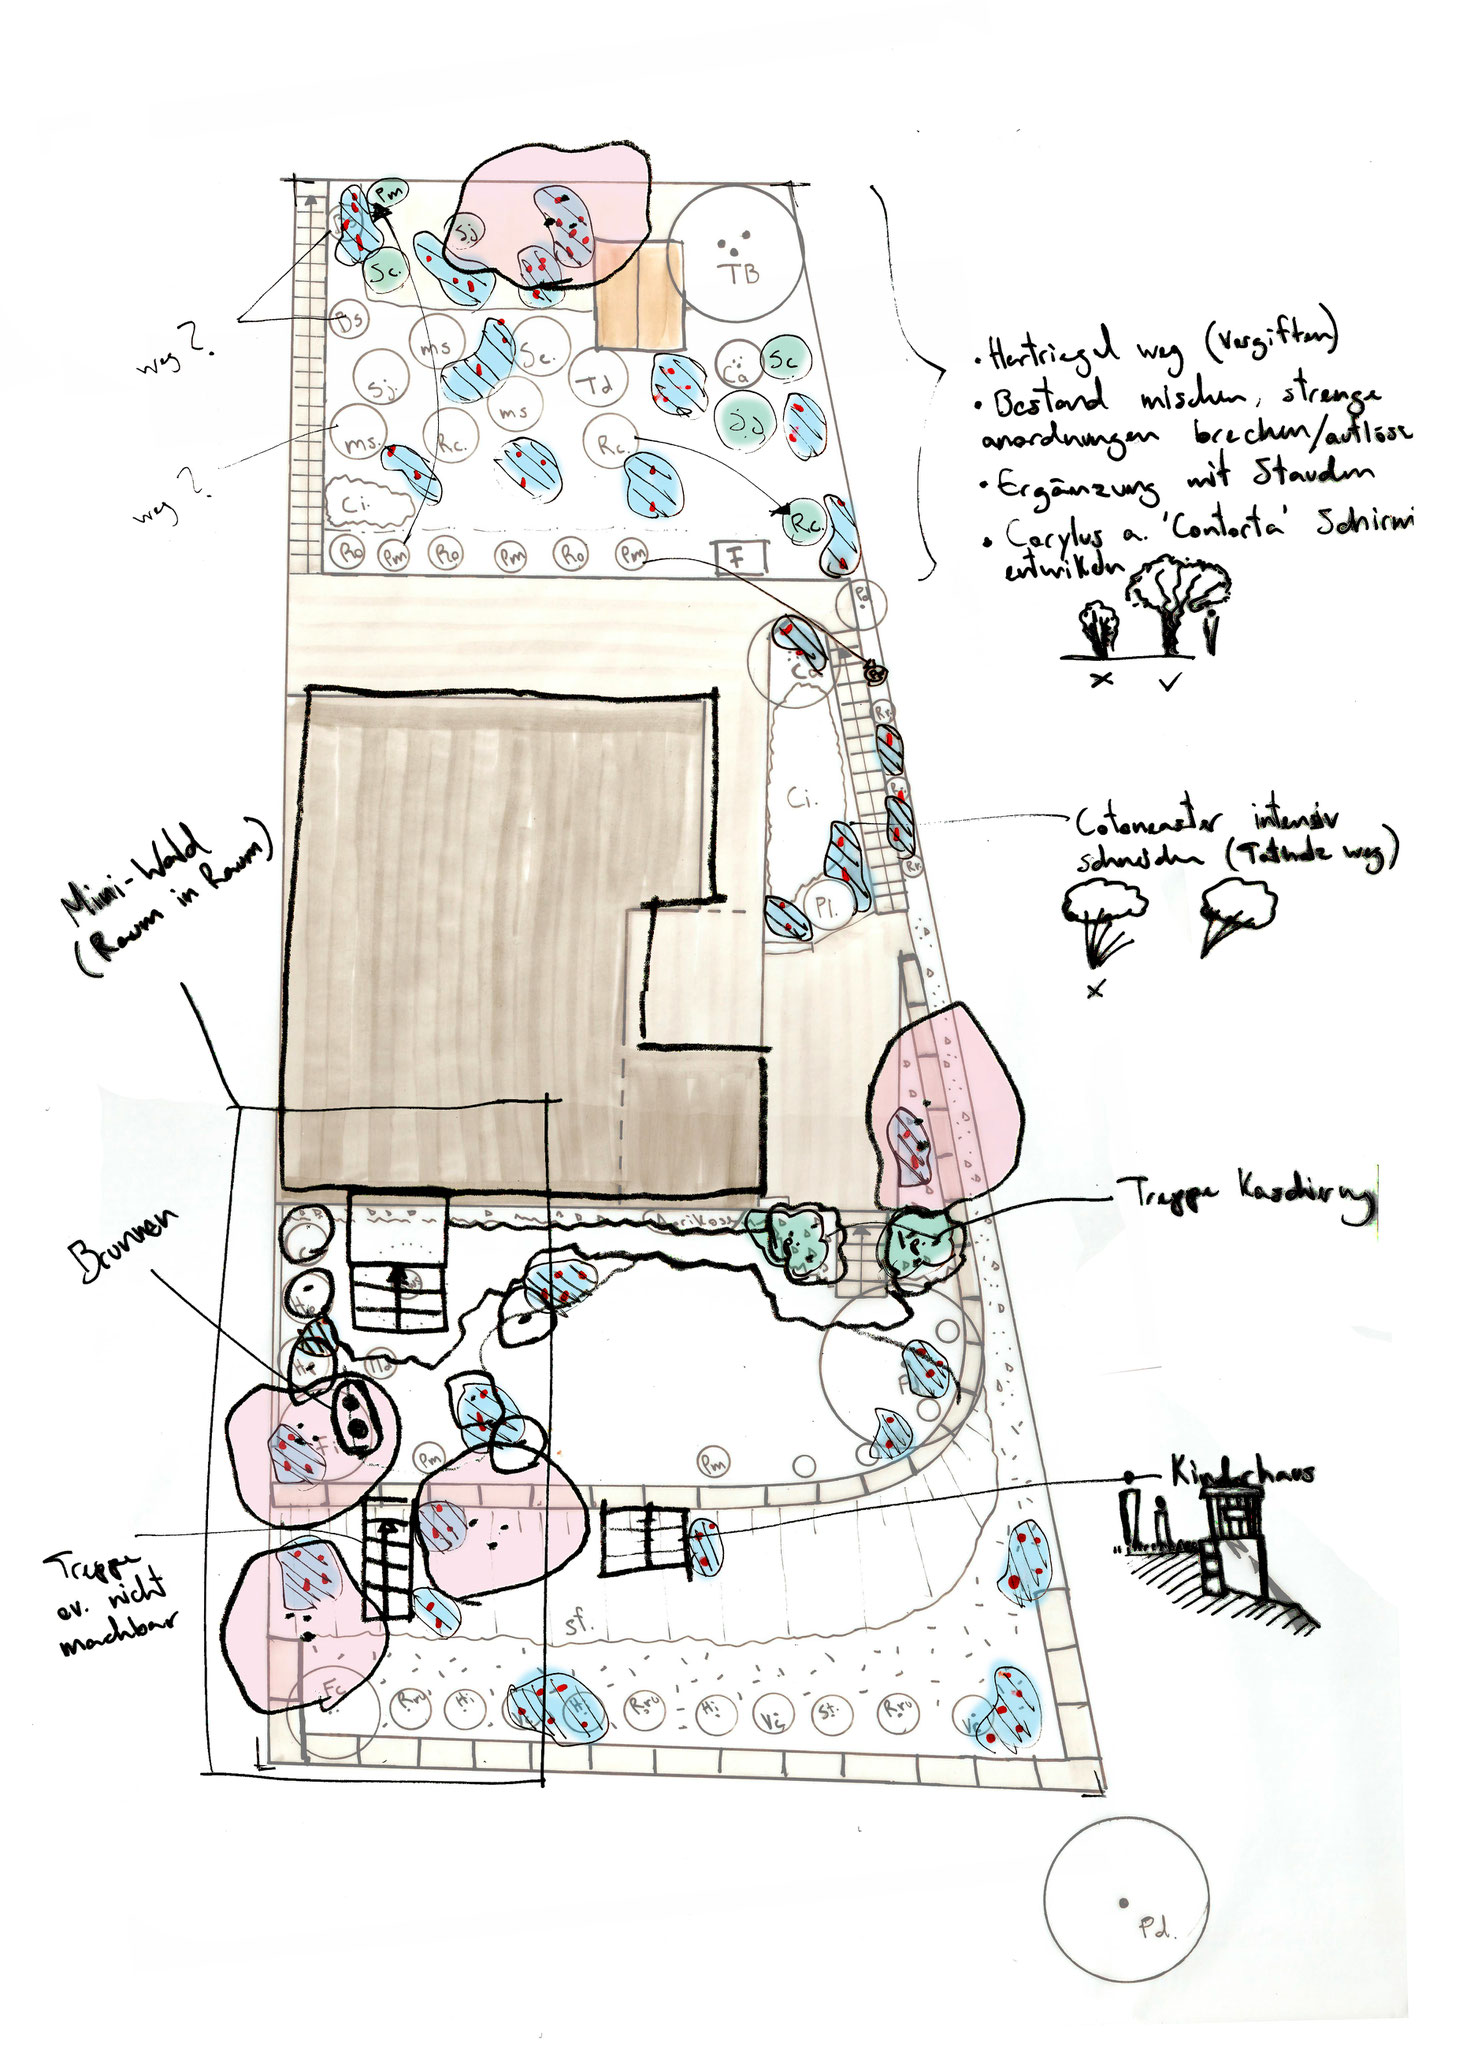 Pm
Sj
TB
Sc.
Bs
ms
Sc.
weg?
Sj.
Td
Ca
Sc
ms
J.J
ms.
Rc.
Rc.
weg?
Ci.
Rc.
Ro
Pm
Ro
Pm
Ro
Pm
F
• Hartriegel weg (vergiften)
• Bestand mischen, strenge
anordnungen brechen/auflöse
• Ergänzung mit Stauden
• Corylus a. 'Contorta' Schirm
entwikeln
Ca
Ci.
Pl.
Cotoneaster intensiv
schneiden (Totholz weg)
Mini-Wald
(Raum in Raum)
Treppe Kaschierung
Brunnen
Pm
Pm
Kinderhaus
Treppe
ev. nicht
machbar
sf.
Fc
Rru
Hi
Vc
Hi
Rru
Hi
Vc
St.
Rru
Vc
Pd.